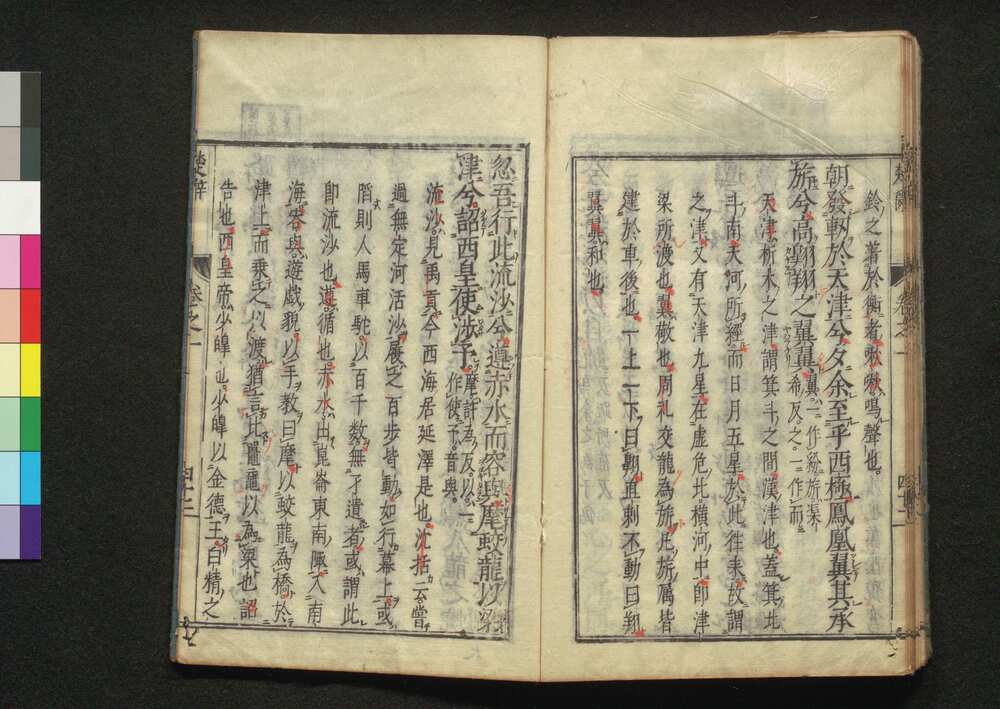 鈴之著於衡者啾啾鳴聲也
朝發軔於天津兮夕余至乎西極鳳凰翼其承
旂兮高翺翔之翼翼翼一作紛旂渠
希反之一作而
天津析木之津謂箕斗之間漢津也蓋箕北
斗南天河所經而日月五星於此徃来故謂
之津又有天津九星在虛危北橫河中即津
梁所渡也翼敬也周礼交龍為旂
建於車後也一上一下曰翺直刺不動曰翔
翼翼和也
忽吾行此流沙兮遵赤水而容與麾蛟龍以梁
津兮詔西皇使涉予麾許為反以一
作使予音與
流沙見禹貢今西海居延澤是也沈括云嘗
過無定河活沙履之百步皆動如行幕上或
䧟則人馬車駝以百千數無孑遺者或謂此
即流沙也遵循也赤水出崑崙東南陬入南
海容與遊戲貌以手教曰麾以蛟龍為橋於
津上而乗之以渡猶言比黿鼉以為梁也詔
告也西皇帝少皥也少皥以金德王白精之
楚辭
卷之一
四十三